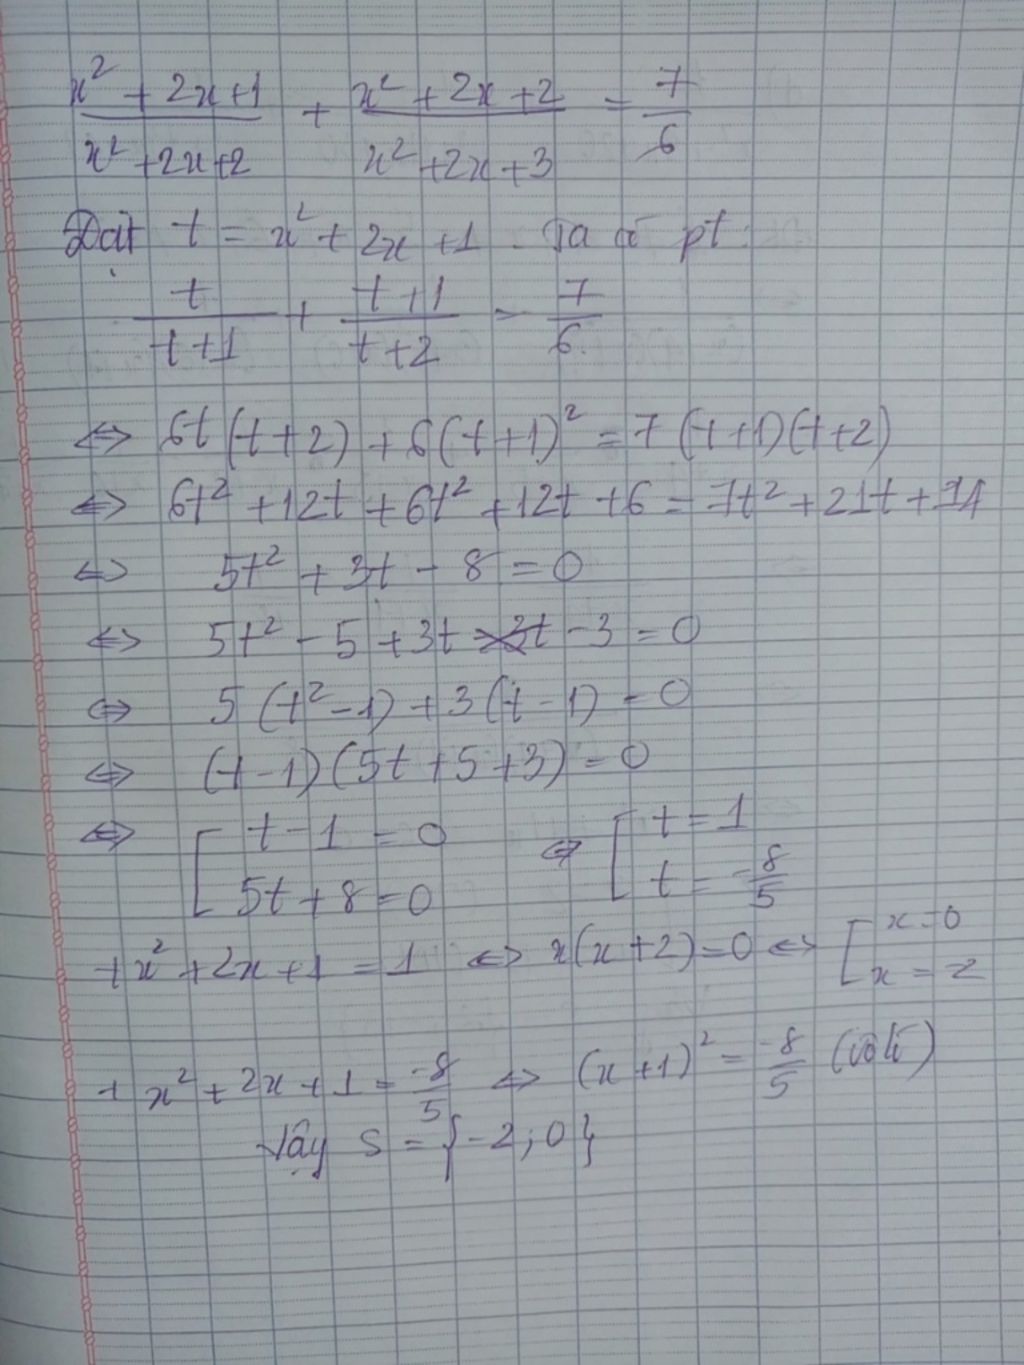 x² + 2x+1 / x² +2x+2 + x² +2x +2 / x² +2x +3 = 7/6
Đặt t = x² + 2x +1. Ta có pt:
t / t+1 + t+1 / t+2 = 7/6.
⇔ 6t(t+2) + 6(t+1)² = 7(t+1)(t+2)
⇔ 6t² +12t +6t² +12t +6 = 7t² +21t +14
⇔ 5t² + 3t - 8 = 0
⇔ 5t² - 5 + 3t - 3 = 0
⇔ 5(t² -1) +3(t -1) = 0
⇔ (t-1)(5t+5+3) = 0
⇔ [ t-1 = 0 ⇔ [ t = 1
5t+8 = 0 t = -8/5
+ x² +2x +1 = 1 ⇔ x(x+2)=0 ⇔ [ x=0
x = -2
+ x² + 2x + 1 = -8/5 ⇔ (x+1)² = -8/5 (vô lí)
Vậy S = {-2; 0}